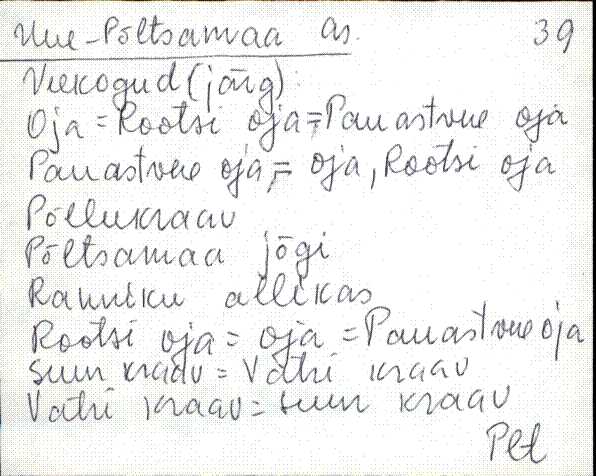 Uue-Põltsamaa as. 39
Veekogud (järg)
Oja = Rootsi oja = Pauastvere oja
Pauastvere oja = oja, Rootsi oja
Põllukraav
Põltsamaa jõgi
Ranniku allikas
Rootsi oja = oja = Pauastvere oja
Suur kraav = Vatri kraav
Vatri kraav = Suur kraav
Plt